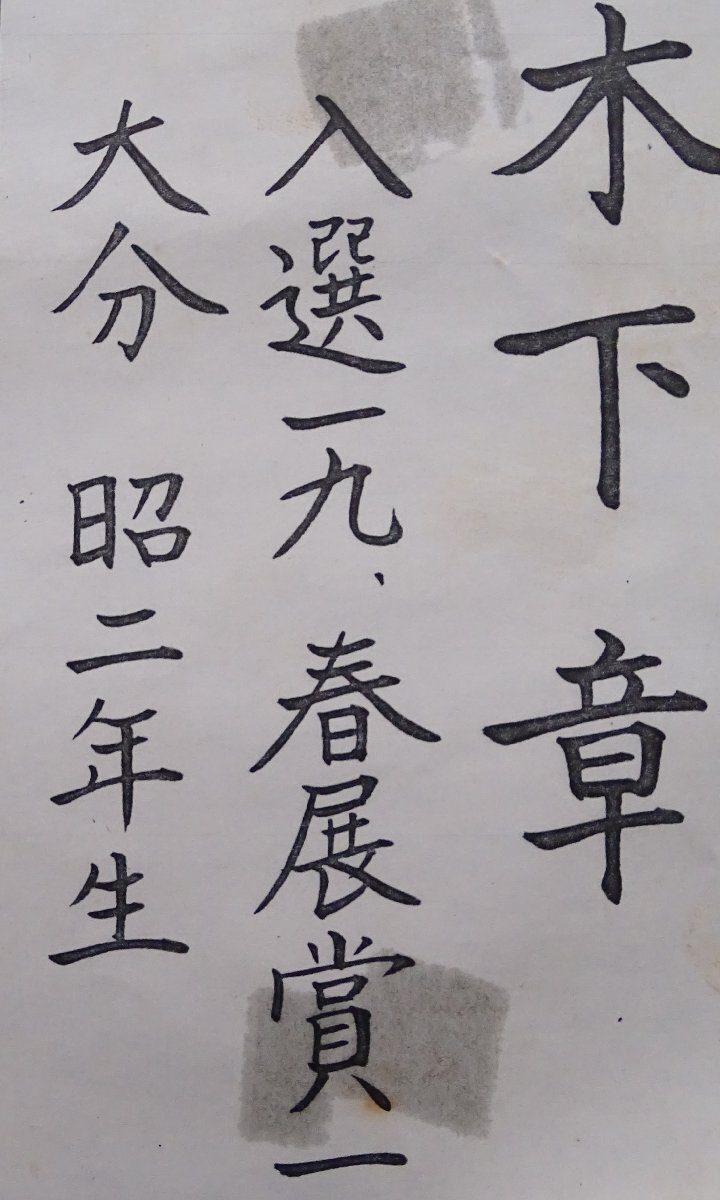 木下章
入選一九、春展賞一
大分 昭二年生